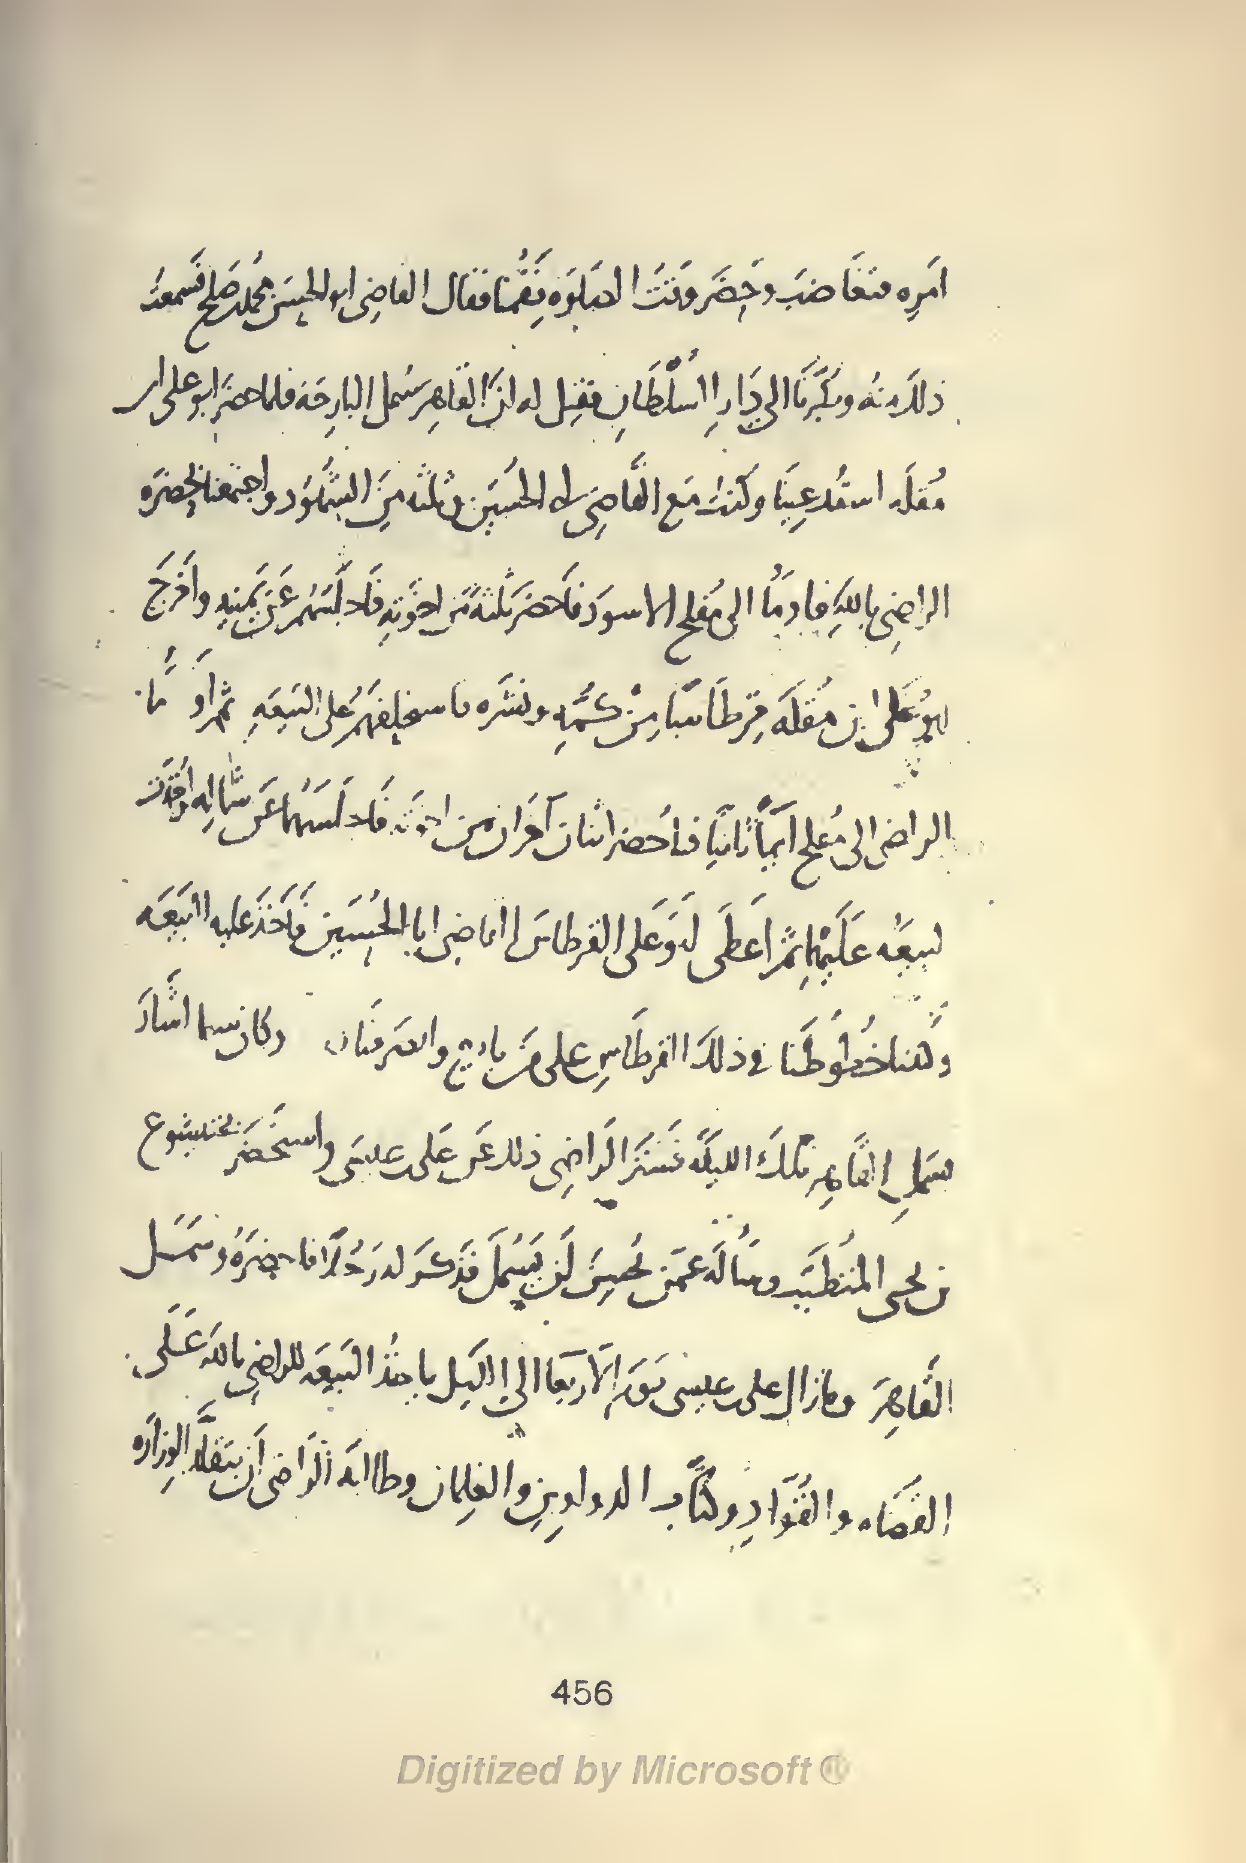 امَرِه فتغَاضبَ وحَضَر وَقتُ الصَلوَه فقُمنا فقال القاضِى ابو الحسَن محمد بن صَلح فسمعتُ
ذلك منهُ وبكَّرنَا الى دَارِ السُلْطَانِ فقيل له انّ القَاهِر سُمل البارحَة فلما حضرَ ابو على بن
مُقلَه استدعِينَا وكنتُ مَع القَاضى ابى الحُسَين وثلثه مِنَ الشهُود واجتمعنا بحضرَه
الراضِى باللهِ فاومَأ الى مُفلح الاسود فاَحضرَ ثلثةً مِن اخوتهِ فَاجلسَهُم عَن يَمينِه واَخرَجَ
ابوُ عَلى ابن مُقلَه قِرطَاسًا مِنْ كُمّهِ ونشَره فاستحلفهُم على البَيعَهِ ثم اَومَا
الراضى الى مُفلح اَيماً ثانيًا فاحُضر اثنان آخرَان من اخوته فَاجلسَهُما عَن شماله واُخذت
البيعَه عَلَيهما ثم اَعطَى ابو على القرطاسَ القاضى ابا الحُسَين فاَخَذَ عليه البَيعَه
وكتبنا خُطوُطَنا فى ذلك القرطَاسِ على مَن بايع وانصرفنا وكان سيما اشَارَ
بسَملِ القَاهِر تلكَ الليلَه فسَتَرَ الرَاضِى ذلك عَن عَلى بن عيسى واستحضَر بختيشوع
بن يحيى المُتطَبّب وسَاَلَه عمّن يُحسِنُ اَن يَسُملَ فذَكرَ له رَجُلًا فاحضرَهُ وسَمَل
القَاهِرَ وما زال على بن عيسى يَومَ الاَربعَا الى الليَل ياخذُ البَيعَه للراضِى بالله عَلى
القضَاه والقُوّادِ وكتّاب الدواوينِ والغِلمان وطالبَه الرَاضى اَن يتقلّد الوزارَه
456
Digitized by Microsoft ®